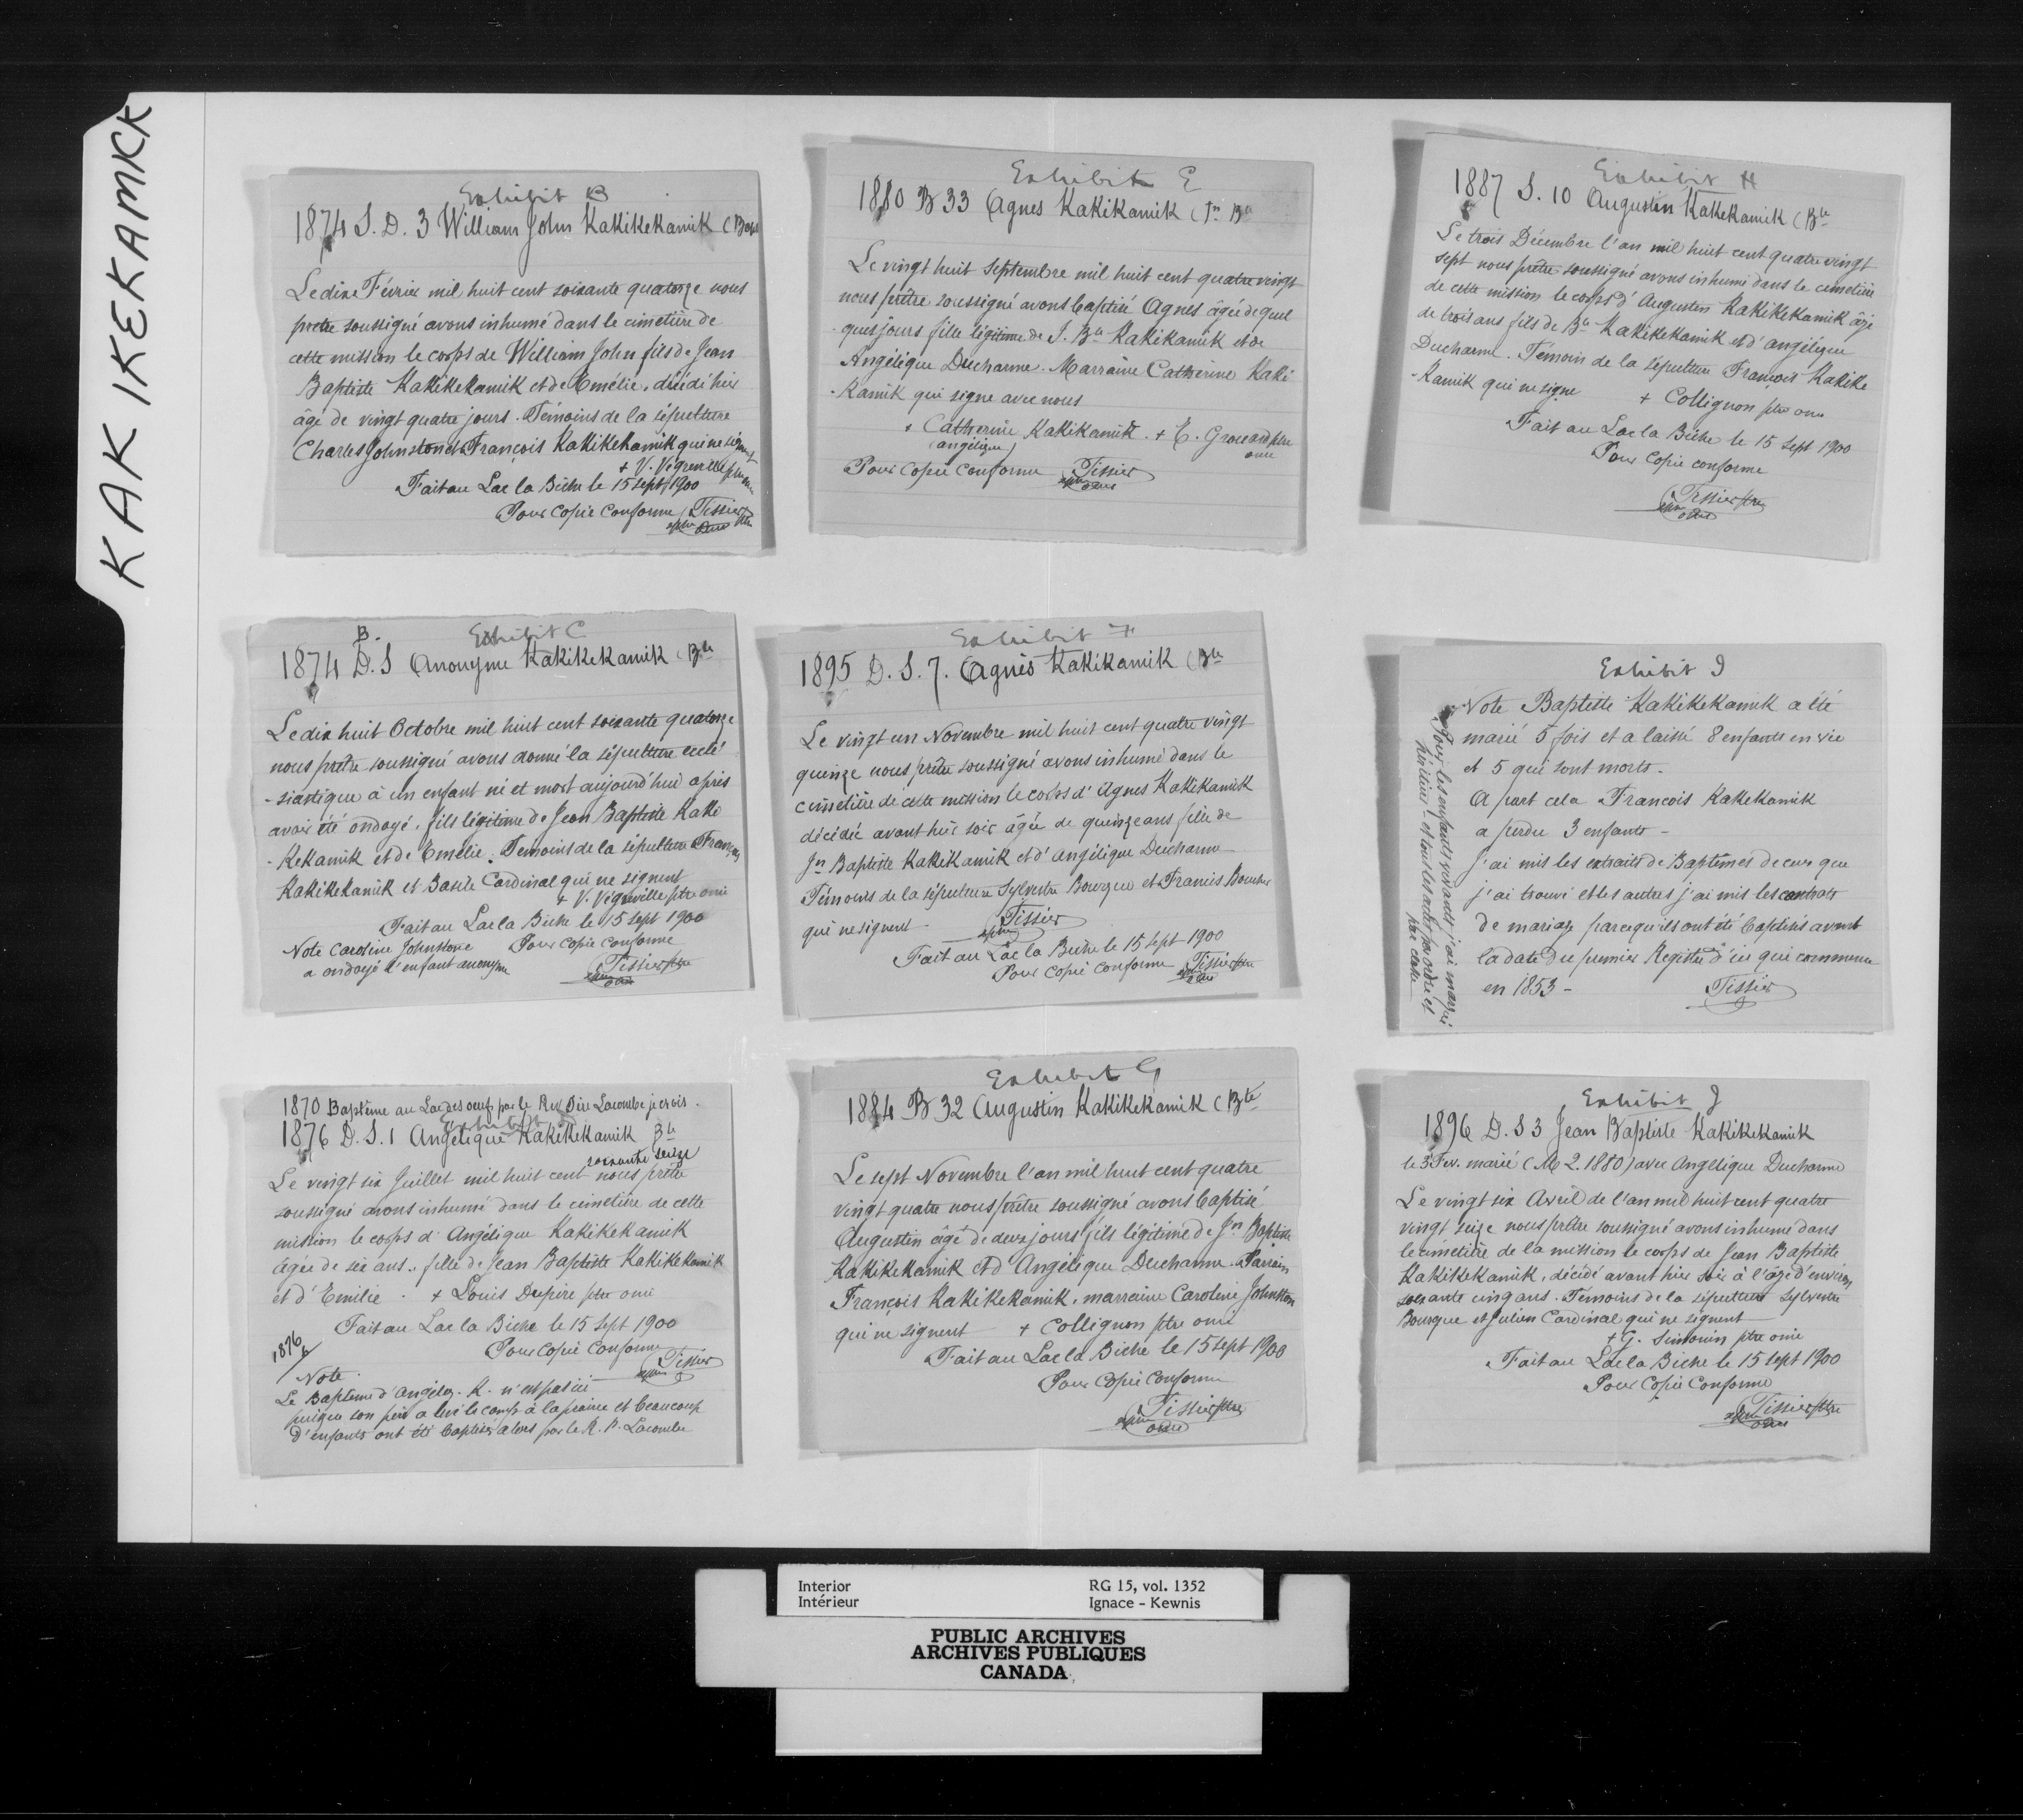 KAKIKEKAMICK
Exhibit B
1874 S. D. 3 William John Kakikekamik (Bapt
Le dix Février mil huit cent soixante quatorze nous
prêtre soussigné avons inhumé dans le cimetière de
cette mission le corps de William John fils de Jean
Baptiste Kakikekamik et de Emélie, décédé hier
âgé de vingt quatre jours. Témoins de la sépulture
Charles Johnston et François Kakikekamik qui ne signent
+ V. Végreville ptre omi
Fait au Lac la Biche le 15 sept 1900
Pour Copie Conforme Tissier ptre
omi
Exhibit C
B.
1874 D. S Anonyme Kakikekamik (Bte
Le dix huit Octobre mil huit cent soixante quatorze
nous prêtre soussigné avons donné la sépulture ecclé
-siastique à un enfant né et mort aujourd'hui après
avoir été ondoyé, fils légitime de Jean Baptiste Kaki
-Kekamik et de Emélie. Temoins de la sépulture François
Kakikekamik et Basile Cardinal qui ne signent
+ V. Végreville ptre omi
Fait au Lac la Biche le 15 sept 1900
Note Caroline Johnstone Pour Copie conforme
a ondoyé l'enfant anonyme Tissier ptre
omi
1870 Baptême au Lac des oeufs par le Rev Père Lacombe je crois.
Exhibit D
1876 D. S. 1 Angélique Kakikekamik Bte
soixante seize
Le vingt six Juillet mil huit cent nous prêtre
soussigné avons inhumé dans le cimetière de cette
mission le corps d'Angélique Kakikekamik
âgée de six ans, fille de Jean Baptiste Kakikekamik
et d'Emilie. + Louis Dupire ptre omi
Fait au Lac la Biche le 15 Sept 1900
Pour Copie Conforme
1876 Tissier
Note.
Le Baptême d'Angéliq. K. n'est pas ici
puisque son père a levé le camp à la prairie et beaucoup
d'enfants ont été baptisés alors par le R. P. Lacombe
Exhibit E
1880 B 33 Agnes Kakikamik (Jn Bte
Le vingt huit Septembre mil huit cent quatre vingt
nous prêtre soussigné avons baptisé Agnes âgée de quel
ques jours fille légitime de J. Bte Kakikamik et de
Angélique Ducharme. Marraine Catherine Kaki
-Kamik qui signe avec nous
+ Catherine Kakikamik. + E. Grouard ptre
(angélique) omi
Pour Copie Conforme Tissier
omi
Exhibit F
1895 D. S. 7. Agnès Kakikamik (Bte
Le vingt un Novembre mil huit cent quatre vingt
quinze nous prêtre soussigné avons inhumé dans le
cimetière de cette mission le corps d'Agnes Kakikamik
décédée avant hier soir âgée de quinze ans fille de
Jn Baptiste Kakikamik et d'Angélique Ducharme
Témoins de la sépulture Sylvestre Bourque et Francis Boucher
qui ne signent. Tissier
Fait au Lac la Biche le 15 sept 1900
Pour Copie Conforme Tissier ptre
omi
Exhibit G
1884 B 32 Augustin Kakikekamik (Bte
Le sept Novembre l'an mil huit cent quatre
vingt quatre nous prêtre soussigné avons baptisé
Augustin âgé de deux jours fils légitime de Jn Baptiste
Kakikekamik et d'Angélique Ducharme. Parrain
François Kakikekamik, marraine Caroline Johnston
qui ne signent + Collignon ptre omi
Fait au Lac la Biche le 15 sept 1900
Pour Copie Conforme
Tissier ptre
omi
Exhibit H
1887 S. 10 Augustin Kakekamik (Bte
Le trois Décembre l'an mil huit cent quatre vingt
sept nous prêtre soussigné avons inhumé dans le cimetière
de cette mission le corps d'Augustin Kakikekamik âgé
de trois ans fils de Bte Kakikekamik et d'angélique
Ducharme. Témoin de la sépulture François Kakike
-Kamik qui ne signe + Collignon ptre omi
Fait au Lac la Biche le 15 Sept 1900
Pour Copie conforme
Tissier ptre
omi
Exhibit I
Note Baptiste Kakikekamik a été
marié 5 fois et a laissé 8 enfants en vie
et 5 qui sont morts.
A part cela Francois Kakekamik
a perdu 3 enfants -
J'ai mis les extraits de Baptêmes de ceux que
j'ai trouvé et les autres j'ai mis les contrats
de mariage parcequ'ils ont été baptisés avant
la date du premier Registre d'ici qui commence
en 1853 - Tissier
Pour les enfants vivants j'ai marqué
héritier et tout les actes par ordre et
par caste
Exhibit J
1896 D. S 3 Jean Baptiste Kakikekamik
le 3 Fev. marié (M 2. 1880) avec Angélique Ducharme
Le vingt six Avril de l'an mil huit cent quatre
vingt seize nous prêtre soussigné avons inhumé dans
le cimetière de la mission le corps de Jean Baptiste
Kakikekamik, décédé avant hier soir à l'âge d'environ
soixante cinq ans. Témoins de la sépulture Sylvestre
Bourque et Julien Cardinal qui ne signent
+ G. Simonin ptre omi
Fait au Lac la Biche le 15 Sept 1900
Pour Copie Conforme
Tissier ptre
omi
Interior RG 15, vol. 1352
Intérieur Ignace - Kewnis
PUBLIC ARCHIVES
ARCHIVES PUBLIQUES
CANADA